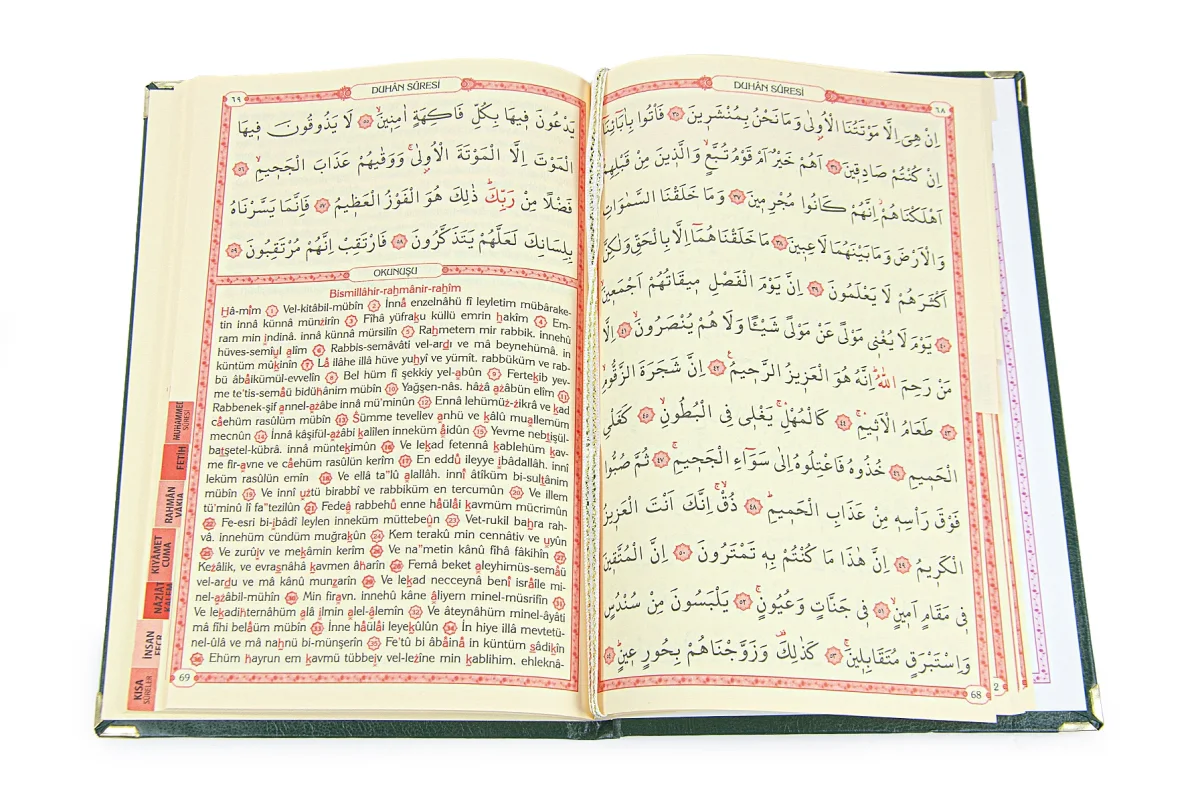 DUHÂN SÛRESİ
٦٨
اِنْ هِيَ اِلَّا مَوْتَتُنَا الْاُولٰى وَمَا نَحْنُ بِمُنْشَرٖينَ ٣٥ فَأْتُوا بِاٰبَٓائِنَٓا
اِنْ كُنْتُمْ صَادِقٖينَ ٣٦ اَهُمْ خَيْرٌ اَمْ قَوْمُ تُبَّعٍ وَالَّذٖينَ مِنْ قَبْلِهِمْ
اَهْلَكْنَاهُمْ اِنَّهُمْ كَانُوا مُجْرِمٖينَ ٣٧ وَمَا خَلَقْنَا السَّمٰوَاتِ
وَالْاَرْضَ وَمَا بَيْنَهُمَا لَاعِبٖينَ ٣٨ مَا خَلَقْنَاهُمَٓا اِلَّا بِالْحَقِّ وَلٰكِنَّ
اَكْثَرَهُمْ لَا يَعْلَمُونَ ٣٩ اِنَّ يَوْمَ الْفَصْلِ مٖيقَاتُهُمْ اَجْمَعٖينَ
٤٠ يَوْمَ لَا يُغْنٖي مَوْلًى عَنْ مَوْلًى شَيْئًا وَلَا هُمْ يُنْصَرُونَ ٤١ اِلَّا
مَنْ رَحِمَ اللّٰهُ اِنَّهُ هُوَ الْعَزٖيزُ الرَّحٖيمُ ٤٢ اِنَّ شَجَرَةَ الزَّقُّومِ
٤٣ طَعَامُ الْاَثٖيمِ ٤٤ كَالْمُهْلِ يَغْلٖي فِي الْبُطُونِ ٤٥ كَغَلْيِ
الْحَمٖيمِ ٤٦ خُذُوهُ فَاعْتِلُوهُ اِلٰى سَوَٓاءِ الْجَحٖيمِ ٤٧ ثُمَّ صُبُّوا
فَوْقَ رَأْسِهٖ مِنْ عَذَابِ الْحَمٖيمِ ٤٨ ذُقْ اِنَّكَ اَنْتَ الْعَزٖيزُ
الْكَرٖيمُ ٤٩ اِنَّ هٰذَا مَا كُنْتُمْ بِهٖ تَمْتَرُونَ ٥٠ اِنَّ الْمُتَّقٖينَ
فٖي مَقَامٍ اَمٖينٍ ٥١ فٖي جَنَّاتٍ وَعُيُونٍ ٥٢ يَلْبَسُونَ مِنْ سُنْدُسٍ
وَاِسْتَبْرَقٍ مُتَقَابِلٖينَ ٥٣ كَذٰلِكَ وَزَوَّجْنَاهُمْ بِحُورٍ عٖينٍ ٥٤
68
2
DUHÂN SÛRESİ
٦٩
يَدْعُونَ فٖيهَا بِكُلِّ فَاكِهَةٍ اٰمِنٖينَ ٥٥ لَا يَذُوقُونَ فٖيهَا
الْمَوْتَ اِلَّا الْمَوْتَةَ الْاُولٰى وَوَقٰيهُمْ عَذَابَ الْجَحٖيمِ ٥٦
فَضْلًا مِنْ رَبِّكَ ذٰلِكَ هُوَ الْفَوْزُ الْعَظٖيمُ ٥٧ فَاِنَّمَا يَسَّرْنَاهُ
بِلِسَانِكَ لَعَلَّهُمْ يَتَذَكَّرُونَ ٥٨ فَارْتَقِبْ اِنَّهُمْ مُرْتَقِبُونَ ٥٩
OKUNUŞU
Bismillâhir-rahmânir-rahîm
Hâ-mîm 1 Vel-kitâbil-mübîn 2 İnnâ enzelnâhü fî leyletim mübârake-
tin innâ künnâ münzirîn 3 Fîhâ yüfraku küllü emrin hakîm 4 Em-
ram min ındinâ. innâ künnâ mürsilîn 5 Rahmetem mir rabbik. innehû
hüves-semîul alîm 6 Rabbis-semâvâti vel-ardı ve mâ beynehümâ. in
küntüm mûkınîn 7 Lâ ilâhe illâ hüve yuhyî ve yümît. rabbüküm ve rab-
bü âbâikümül-evvelîn 8 Bel hüm fî şekkiy yel-abûn 9 Fertekıb yev-
me te'tis-semâü bidühânim mübîn 10 Yağşen-nâs. hâzâ azâbün elîm 11
Rabbenek-şif annel-azâbe innâ mü'minûn 12 Ennâ lehümüz-zikrâ ve kad
câehüm rasûlüm mübîn 13 Sümme tevellev anhü ve kâlû muallemüm
mecnûn 14 İnnâ kâşifül-azâbi kalîlen inneküm âidûn 15 Yevme nebtışül-
batşetel-kübrâ. innâ müntekımûn 16 Ve lekad fetennâ kablehüm kav-
me fir-avne ve câehüm rasûlün kerîm 17 En eddû ileyye ıbâdallâh. innî
leküm rasûlün emîn 18 Ve ellâ ta"lû alallâh. innî âtîküm bi-sultânim
mübîn 19 Ve innî uztü birabbî ve rabbiküm en tercumûn 20 Ve illem
tü'minû lî fa"tezilûn 21 Fedeâ rabbehû enne hâülâi kavmüm mücrimûn
22 Fe-esri bi-ıbâdî leylen inneküm müttebeûn 23 Vet-rukil bahra rah-
vâ. innehüm cündüm muğrakûn 24 Kem terakû min cennâtiv ve uyûn
25 Ve zurûıv ve mekâmin kerîm 26 Ve na"metin kânû fîhâ fâkihîn 27
Kezâlik, ve evrasnâhâ kavmen âharîn 28 Femâ beket aleyhimüs-semâü
vel-ardu ve mâ kânû munzarîn 29 Ve lekad necceynâ benî isrâîle mi-
nel-azâbil-mühîn 30 Min firavn. innehû kâne âliyem minel-müsrifîn 31
Ve lekadihternâhüm alâ ılmin alel-âlemîn 32 Ve âteynâhüm minel-âyâti
mâ fîhi belâüm mübîn 33 İnne hâülâi leyekûlûn 34 İn hiye illâ mevtetü-
nel-ûlâ ve mâ nahnü bi-münşerîn 35 Fe'tû bi âbâinâ in küntüm sâdikîn
36 Ehüm hayrun em kavmü tübbeıv vel-lezîne min kablihim. ehleknâ-
69
MUHAMMED
SÛRESİ
FETİH
RAHMÂN
VÂKIA
KIYÂMET
CUMA
NÂZİÂT
İNSAN
KISA
SÛRELER